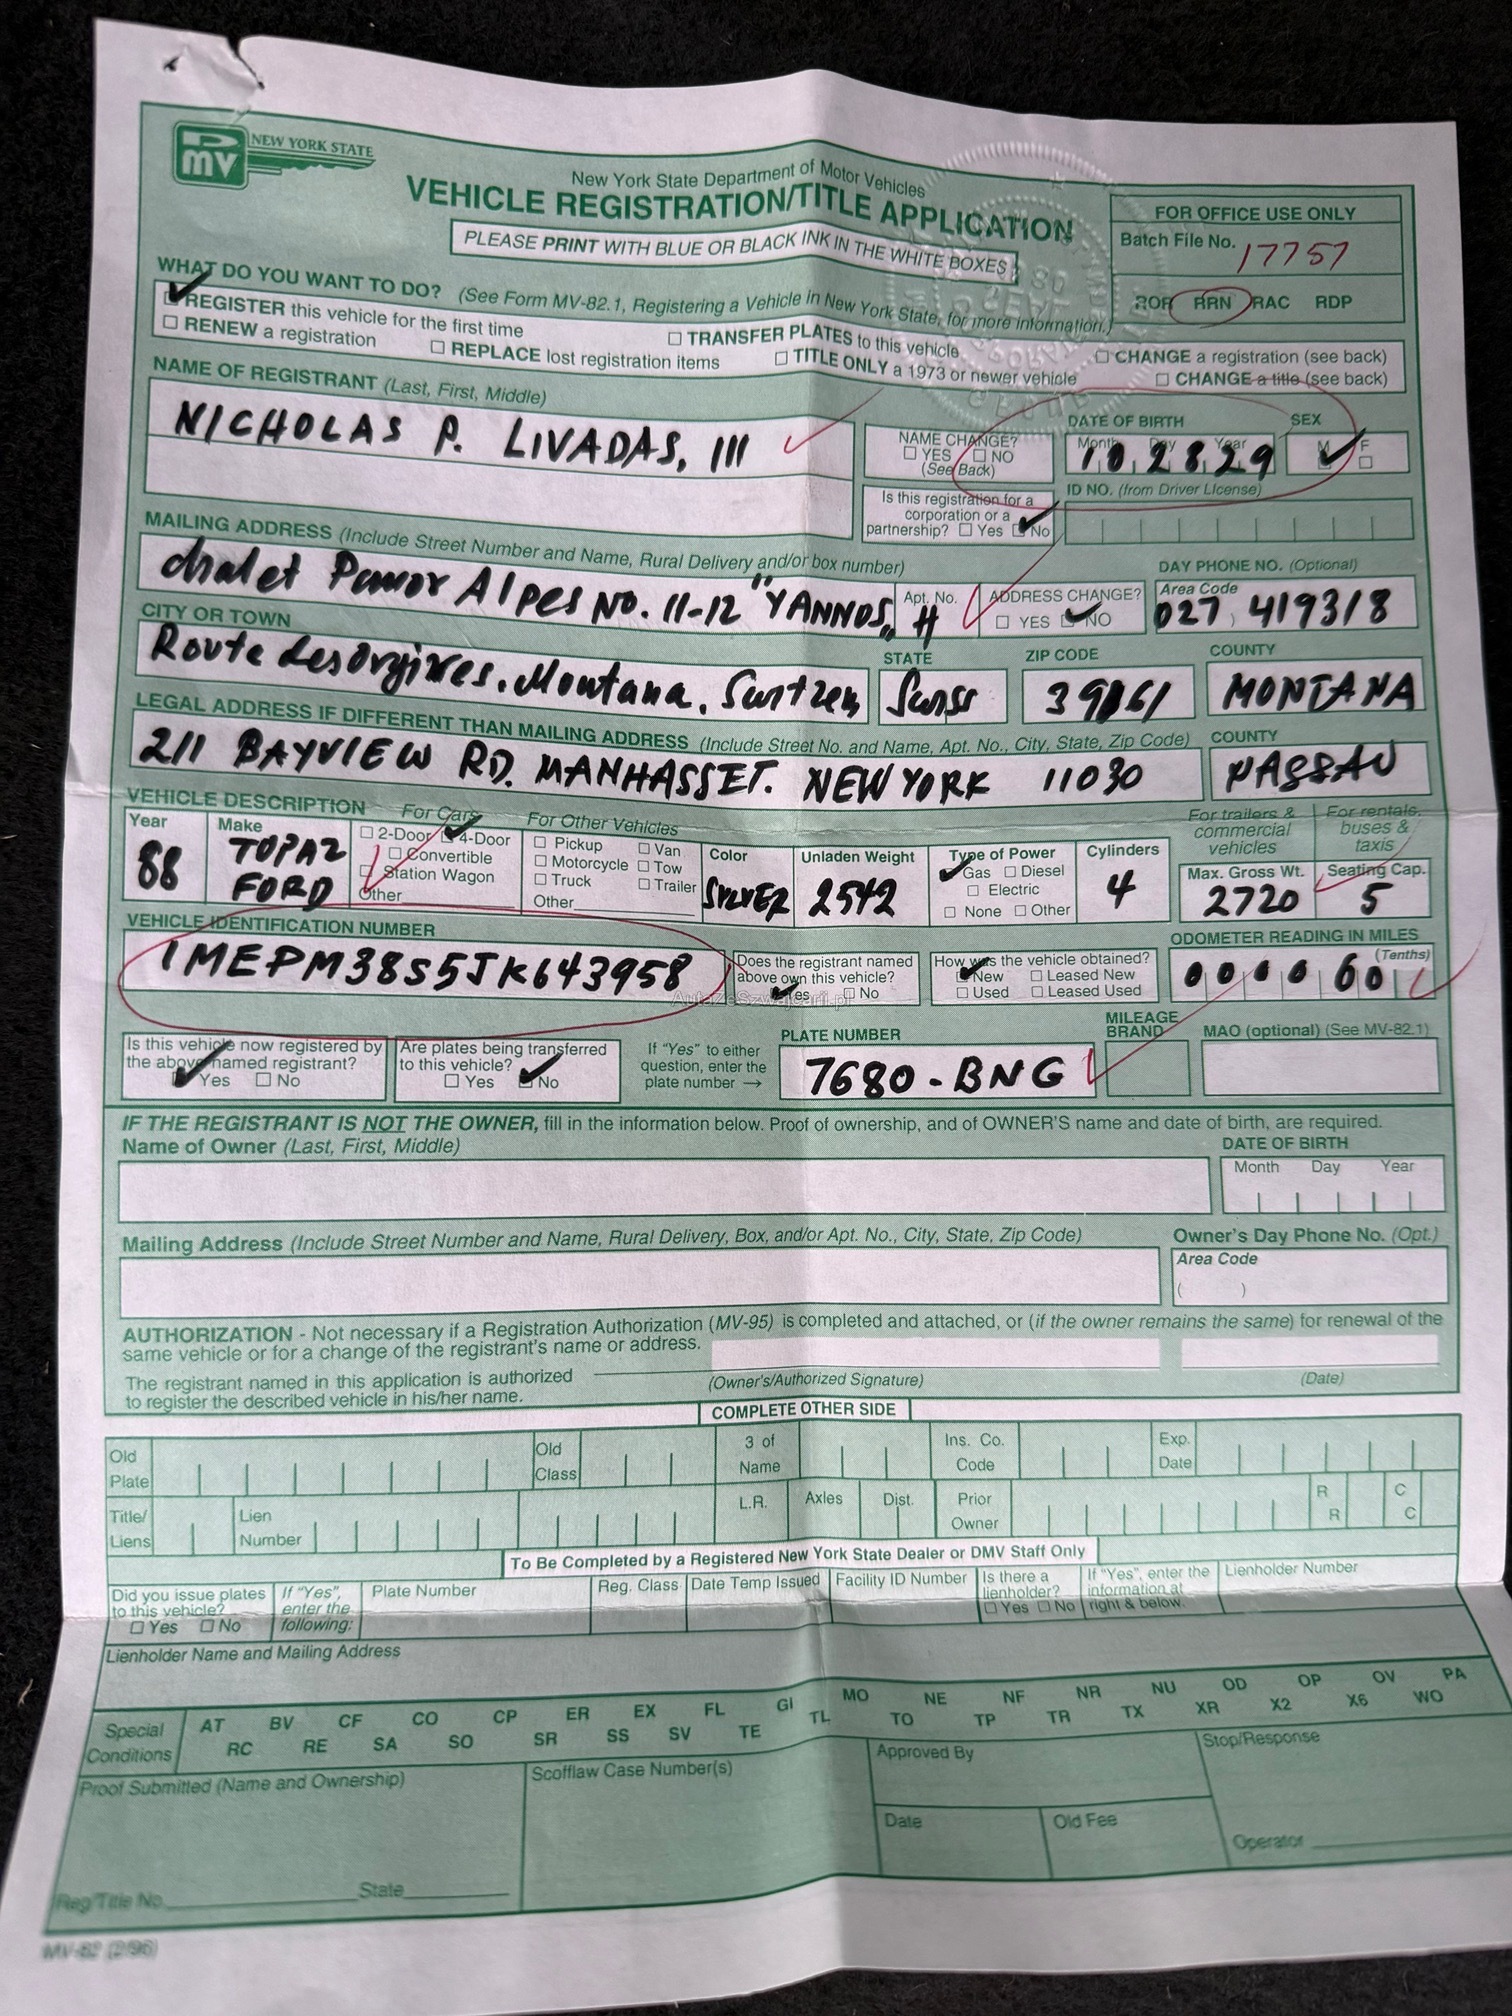 DMV NEW YORK STATE
New York State Department of Motor Vehicles
VEHICLE REGISTRATION/TITLE APPLICATION
PLEASE PRINT WITH BLUE OR BLACK INK IN THE WHITE BOXES
FOR OFFICE USE ONLY
Batch File No. 17757
ROR RRN RAC RDP
WHAT DO YOU WANT TO DO? (See Form MV-82.1, Registering a Vehicle in New York State, for more information.)
REGISTER this vehicle for the first time
TRANSFER PLATES to this vehicle
CHANGE a registration (see back)
RENEW a registration
REPLACE lost registration items
TITLE ONLY a 1973 or newer vehicle
CHANGE a title (see back)
NAME OF REGISTRANT (Last, First, Middle)
NICHOLAS P. LIVADAS, III
NAME CHANGE?
YES NO
(See Back)
DATE OF BIRTH
Month Day Year
102829
SEX
M F
Is this registration for a
corporation or a
partnership? Yes No
ID NO. (from Driver License)
MAILING ADDRESS (Include Street Number and Name, Rural Delivery and/or box number)
Alpes NO. 11-12 "YANNOS"
Apt. No.
H
ADDRESS CHANGE?
YES NO
DAY PHONE NO. (Optional)
Area Code
027 419318
CITY OR TOWN
Route Montana.
STATE
ZIP CODE
COUNTY
MONTANA
LEGAL ADDRESS IF DIFFERENT THAN MAILING ADDRESS (Include Street No. and Name, Apt. No., City, State, Zip Code)
211 BAYVIEW RD. MANHASSET. NEW YORK 11030
COUNTY
NASSAU
VEHICLE DESCRIPTION
Year
88
Make
TOPAZ
FORD
For Cars
2-Door 4-Door
Convertible
Station Wagon
Other
For Other Vehicles
Pickup Van
Motorcycle Tow
Truck Trailer
Other
Color
SILVER
Unladen Weight
2542
Type of Power
Gas Diesel
Electric
None Other
Cylinders
4
For trailers &
commercial
vehicles
Max. Gross Wt.
2720
For rentals,
buses &
taxis
Seating Cap.
5
VEHICLE IDENTIFICATION NUMBER
1MEPM38S5JK643958
Does the registrant named
above own this vehicle?
Yes No
How was the vehicle obtained?
New Leased New
Used Leased Used
ODOMETER READING IN MILES
(Tenths)
000060
AutaZeSzwajcarii.pl
Is this vehicle now registered by
the above named registrant?
Yes No
Are plates being transferred
to this vehicle?
Yes No
If "Yes" to either
question, enter the
plate number →
PLATE NUMBER
7680-BNG
MILEAGE
BRAND
MAO (optional) (See MV-82.1)
IF THE REGISTRANT IS NOT THE OWNER, fill in the information below. Proof of ownership, and of OWNER'S name and date of birth, are required.
Name of Owner (Last, First, Middle)
DATE OF BIRTH
Month Day Year
Mailing Address (Include Street Number and Name, Rural Delivery, Box, and/or Apt. No., City, State, Zip Code)
Owner's Day Phone No. (Opt.)
Area Code
( )
AUTHORIZATION - Not necessary if a Registration Authorization (MV-95) is completed and attached, or (if the owner remains the same) for renewal of the
same vehicle or for a change of the registrant's name or address.
The registrant named in this application is authorized
to register the described vehicle in his/her name.
(Owner's/Authorized Signature)
(Date)
COMPLETE OTHER SIDE
Old
Plate
Old
Class
3 of
Name
Ins. Co.
Code
Exp.
Date
Title/
Liens
Lien
Number
L.R.
Axles
Dist.
Prior
Owner
R
R
C
C
To Be Completed by a Registered New York State Dealer or DMV Staff Only
Did you issue plates
to this vehicle?
Yes No
If "Yes",
enter the
following:
Plate Number
Reg. Class
Date Temp Issued
Facility ID Number
Is there a
lienholder?
Yes No
If "Yes", enter the
information at
right & below.
Lienholder Number
Lienholder Name and Mailing Address
Special
Conditions
AT BV CF CO CP ER EX FL GI MO NE NF NR NU OD OP OV PA
RC RE SA SO SR SS SV TE TL TO TP TR TX XR X2 X6 WO
Proof Submitted (Name and Ownership)
Scofflaw Case Number(s)
Approved By
Stop/Response
Date
Old Fee
Operator
Reg/Title No. State
MV-82 (2/96)